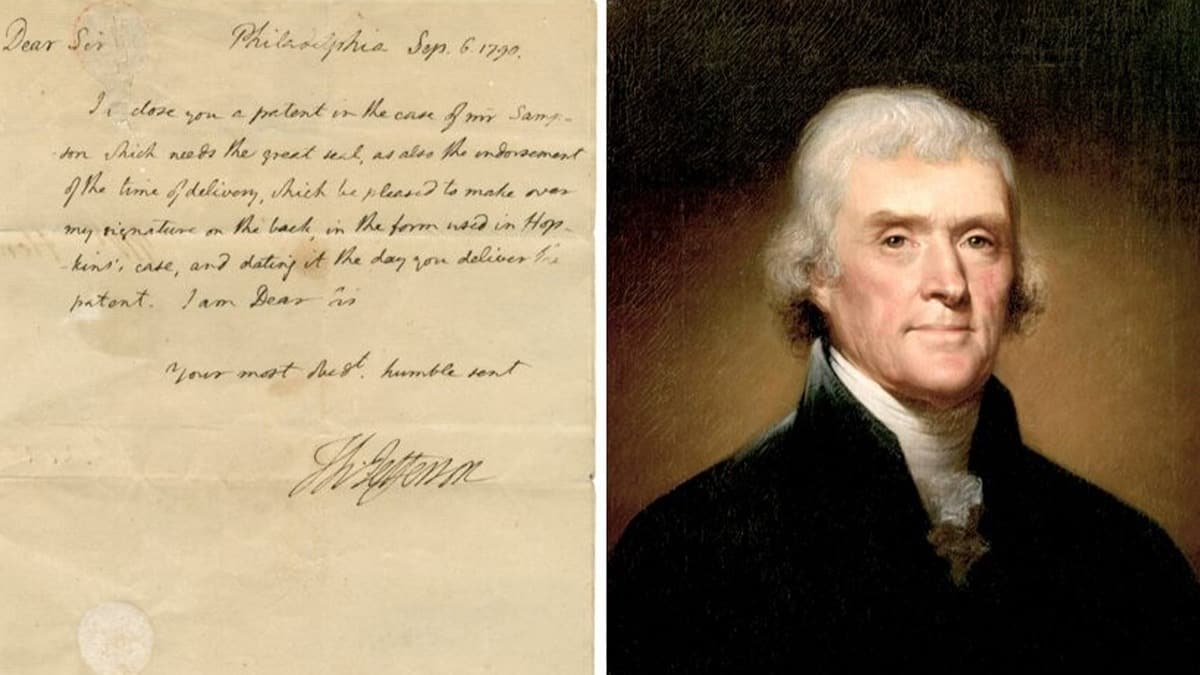 Dear Sir Philadelphia Sep. 6. 1790.
I inclose you a patent in the case of mr Samp-
-son which needs the great seal, as also the endorsement
of the time of delivery, which be pleased to make over
my signature on the back, in the form used in Hop-
-kins's case, and dating it the day you deliver the
patent. I am Dear Sir
Your most obedt. humble servt
Th: Jefferson